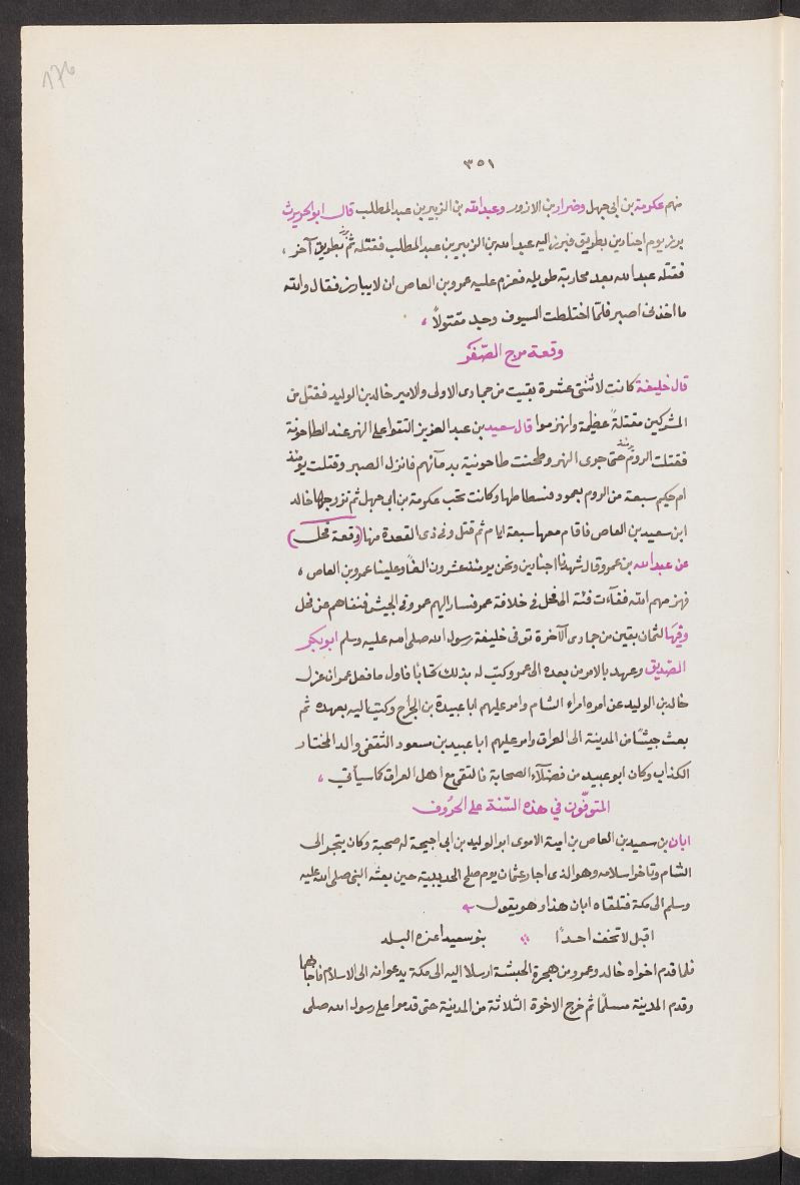 176
٣٥١
منهم عكرمة بن ابى جهل وضرار بن الازور وعبد الله بن الزبير بن عبد المطلب قال ابو الحويرث
برز يوم اجنادين بطريق فبرز اليه عبد الله بن الزبير بن عبد المطلب فقتله ثم برز بطريق آخر ،
فقتله عبد الله بعد محاربة طويله فعزم عليه عمرو بن العاص ان لا يبارز فقال والله
ما اجدنى اصبر فلمّا اختلطت السيوف وجد مقتولاً ،
وقعة مرج الصّفر
قال خليفة كانت لاثنتى عشرة بقيت من جمادى الاولى والامير خالد بن الوليد فقتل من
المشركين مقتلةً عظيمة وانهزموا قال سعيد بن عبد العزيز التقوا على النهر عند الطاحونة
فقتلت الروم يومئذ حتى جرى النهر وطحنت طاحونته بدمآئهم فانزل الصبر وقتلت يومئذ
ام حكيم سبعة من الروم بعمود فسطاطها وكانت تحت عكرمة بن ابى جهل ثم تزوجها خالد
ابن سعيد بن العاص فاقام معها سبعة ايام ثم قتل وفى ذى القعدة منها (وقعة فحل)
عن عبد الله بن عمرو قال شهدنا اجنادين ونحن يومئذ عشرون الفاً وعلينا عمرو بن العاص ،
فهزمهم الله ففآءت فئة الى فحل فى خلافة عمر فسار اليهم عمرو فى الجيش فنفاهم عن فحل
وفيها لثمان بقين من جمادى الآخرة توفى خليفة رسول الله صلى الله عليه وسلم ابو بكر
الصديق وعهد بالامر من بعده الى عمر وكتب له بذلك كتابًا فاول ما فعل عمر ان عزل
خالد بن الوليد عن امره امراء الشام وامر عليهم ابا عبيدة بن الجراح وكتب اليه بعهده ثم
بعث جيشًا من المدينة الى العراق وامر عليهم ابا عبيد بن مسعود الثقفى والد المختار
الكذاب وكان ابو عبيد من فضلآء الصحابة فالتقى مع اهل العراق كما سيأتى ،
المتوفّون في هذه السّنة على الحرُوف
ابان بن سعيد بن العاص بن امية الاموى ابو الوليد بن ابى اجيحة له صحبة وكان يتجر الى
الشام وتاخر اسلامه وهو الذى اجار عثمان يوم صلح الحديبية حين بعثه النبى صلى الله عليه
وسلم الى مكة فتلقاه ابان هذا وهو يقول
اقبل لا تخف احدًا بنو سعيد اعزه البلد
فلما قدم اخواه خالد وعمرو من هجرة الحبشة ارسلا اليه الى مكة يدعوانه الى الاسلام فاجابهما
وقدم المدينة مسلمًا ثم خرج الاخوة الثلاثة من المدينة حتى قدموا على رسول الله صلى